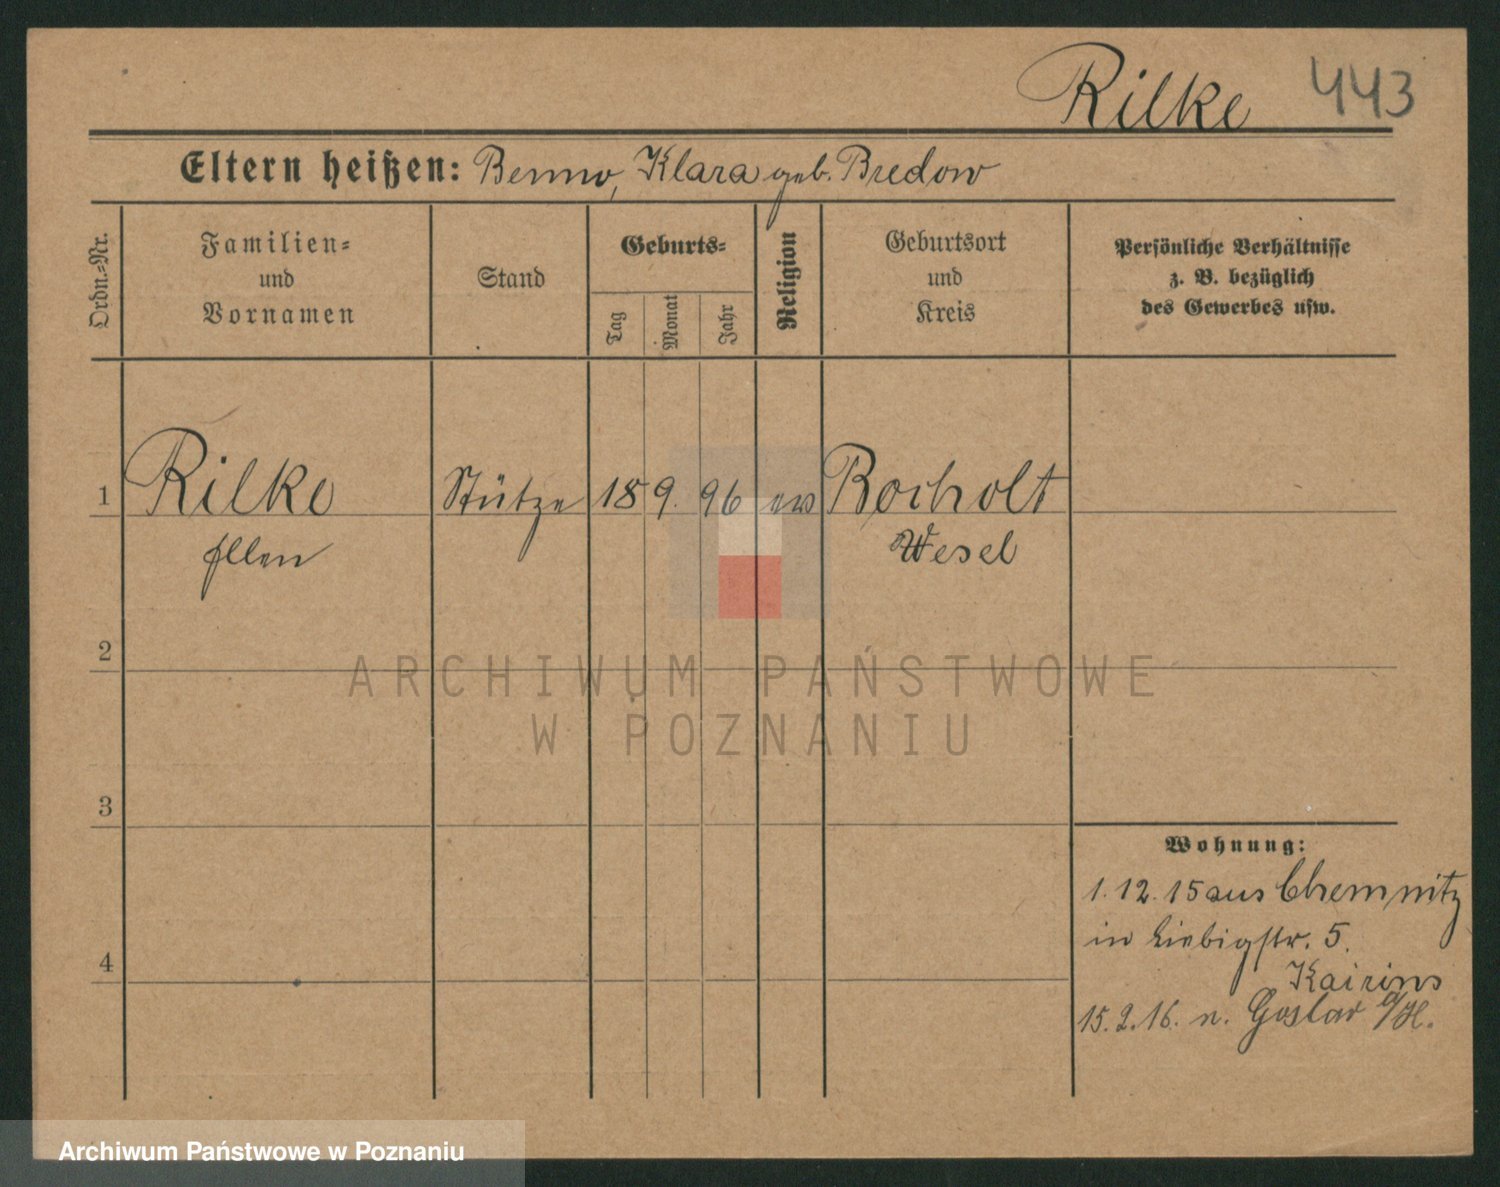 Rilke 443
Eltern heißen: Benno, Klara geb. Bredow
Ordn.-Nr.
Familien-
und
Vornamen
Stand
Geburts-
Tag
Monat
Jahr
Religion
Geburtsort
und
Kreis
Persönliche Verhältnisse
z. B. bezüglich
des Gewerbes usw.
1 Rilke Stütze 18 9. 96 ev Bocholt
Ellen Wesel
2
3
4
Wohnung:
1. 12. 15 aus Chemnitz
in Liebigstr. 5.
15. 2. 16. n. Goslar a/H.
ARCHIWUM PAŃSTWOWE
W POZNANIU
Archiwum Państwowe w Poznaniu